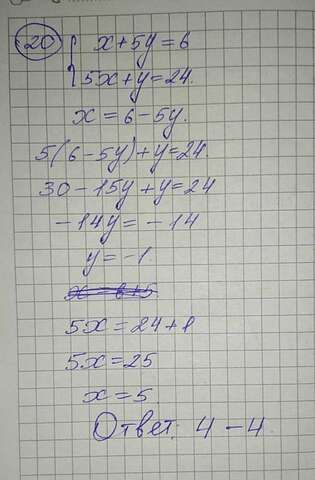 20 { x+5y=6
5x+y=24.
x = 6-5y.
5(6-5y)+y=24.
30-15y+y=24
-14y=-14
y=-1
x=6+5
5x=24+1
5x=25
x=5.
Ответ: 4-4